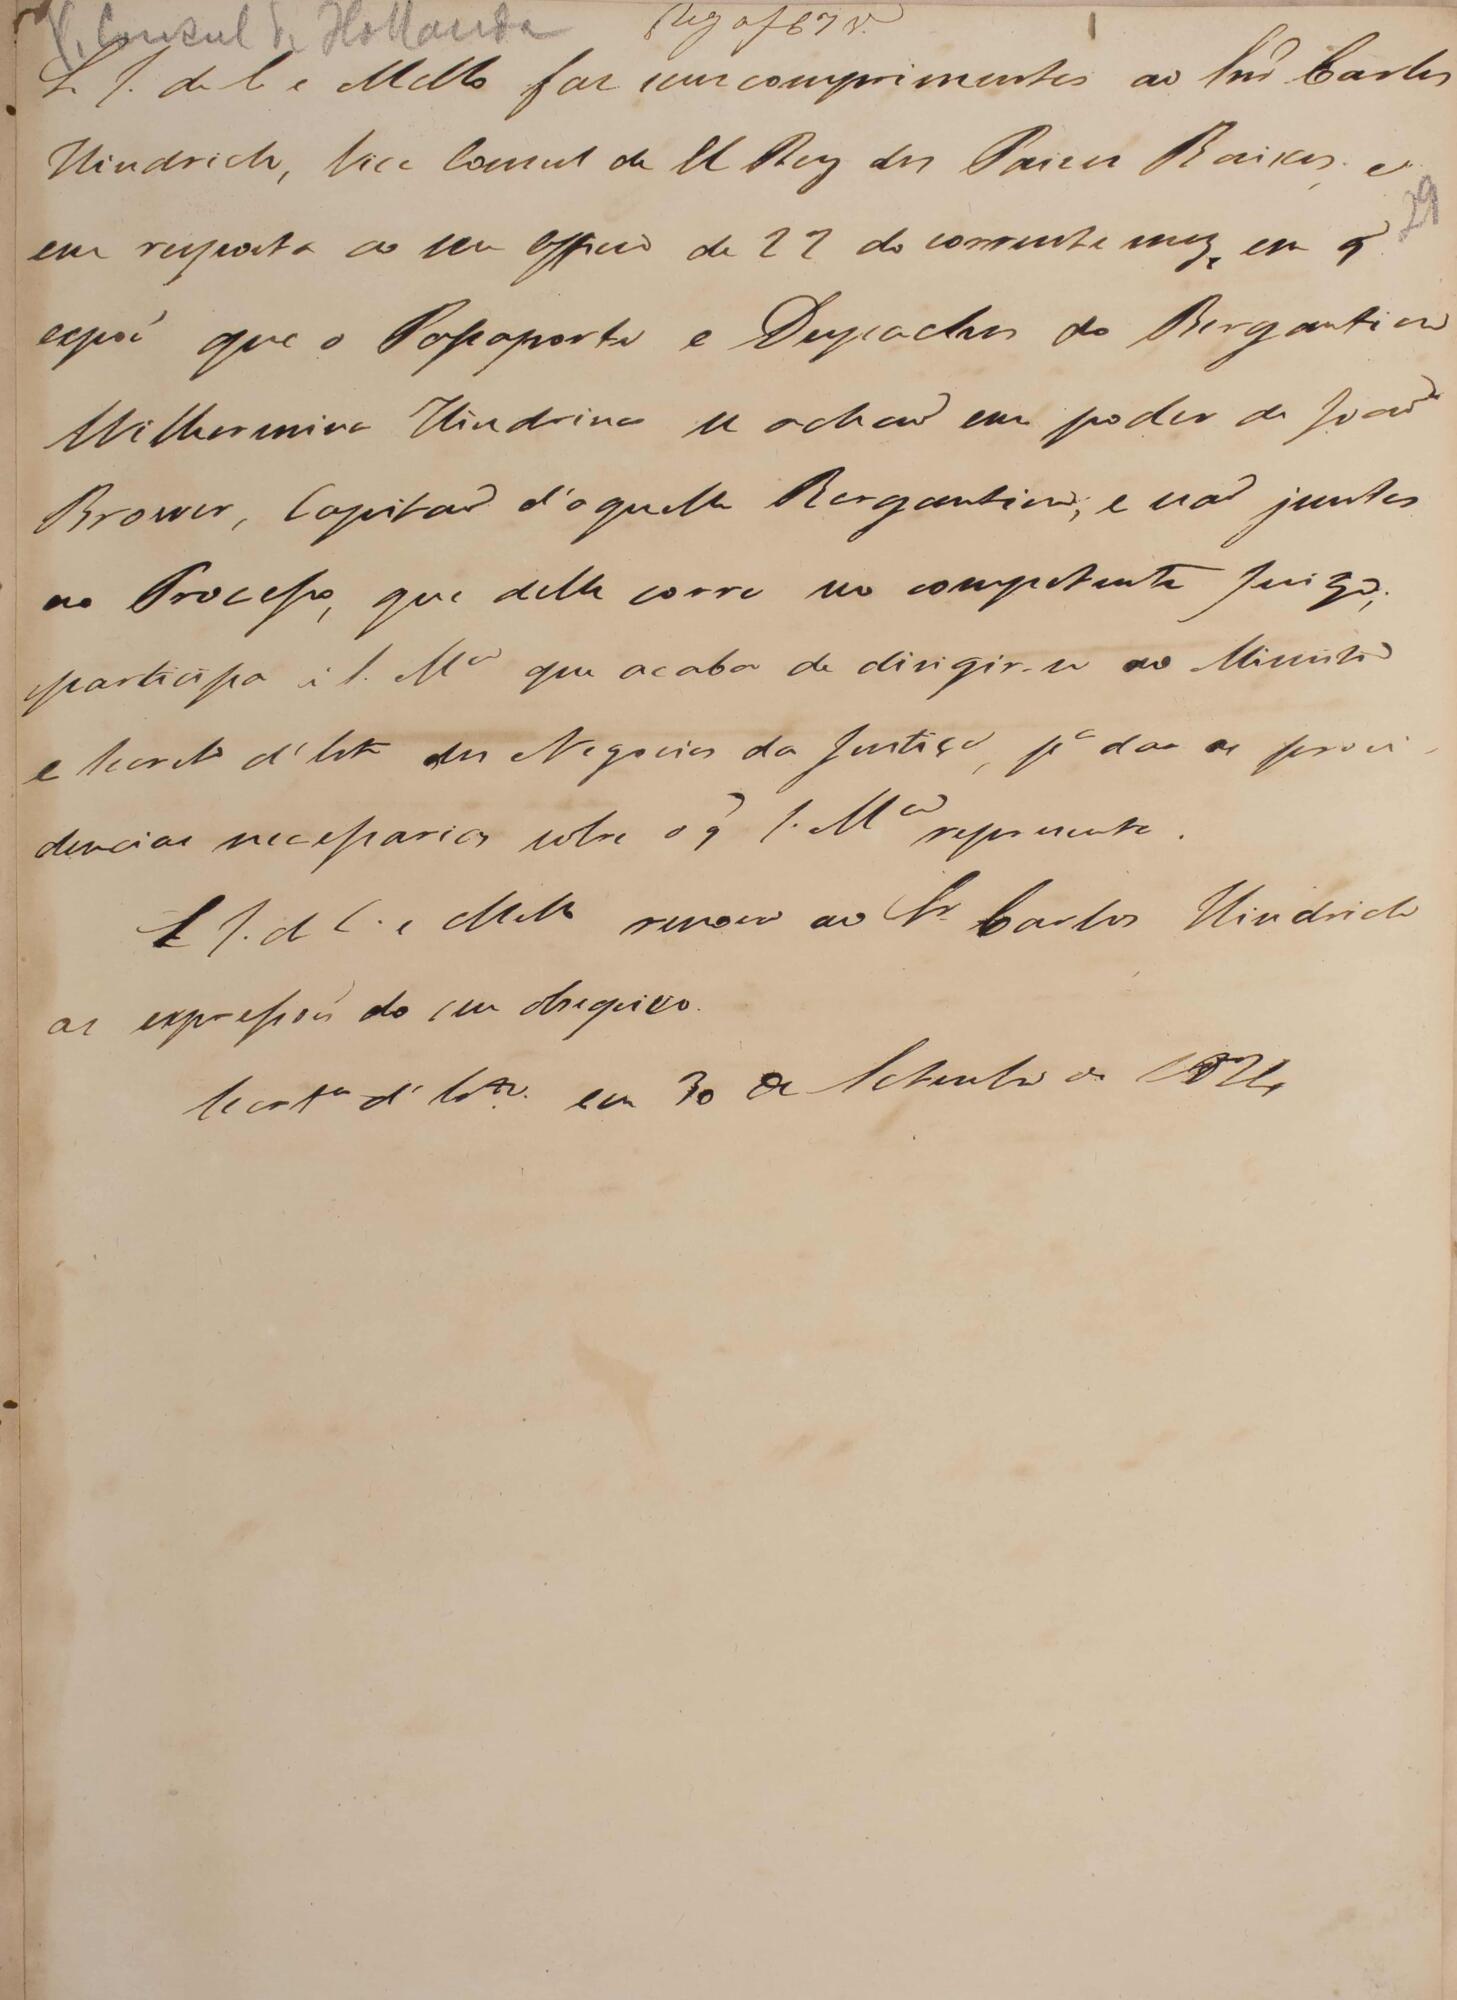 V. Consul de Hollanda
Reg a f 67 v.
L. J. de C. e Mello faz seus comprimentos ao Snr Carlos
Hindrich, Vice Consul de El Rey dos Paizes Baixos, e
29
em resposta ao seu officio de 27 do corrente mez, em q̃
expoē que o Passaporte e Despachos do Bergantim
Wilhermina Hindrina se achaõ em poder de Joaõ
Brower, Capitaõ d'aquelle Bergantim; e naõ juntos
ao Processo, que delle corre no competente Juizo,
participa á S. Mce que acaba de dirigir-se ao Ministro
e Secreto d'Esto dos Negocios da Justiça, pa dar as provi-
dencias necessarias sobre o q̃ S. Mce representa.
L. J. de C. e Mello renova ao Sr. Carlos Hindrich
as expressoẽs do seu obsequio.
Secretra d'Esto. em 30 de Setembro de 1824